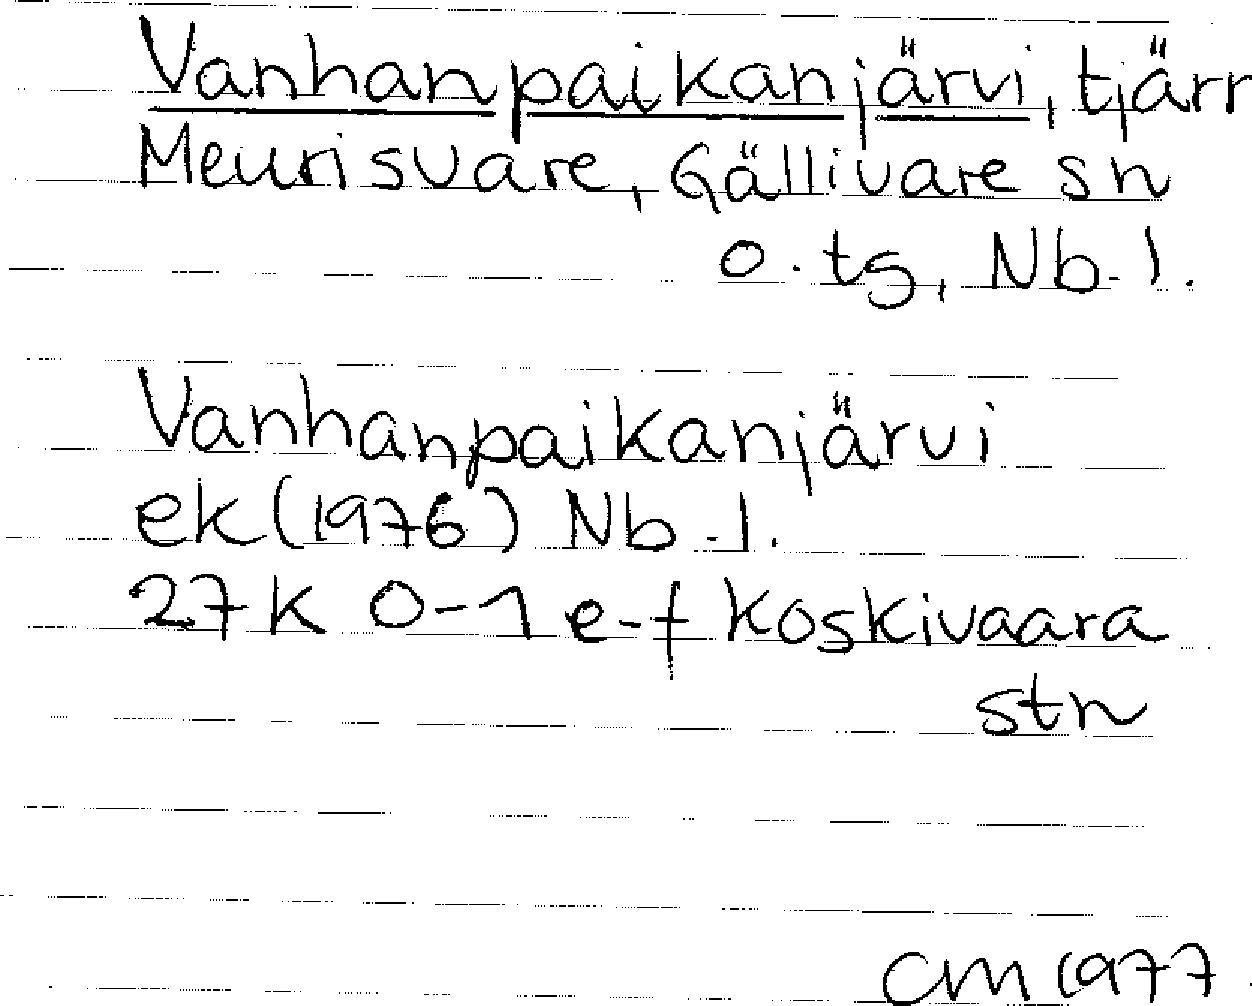 Vanhanpaikanjärvi, tjärr
Meurisvare, Gällivare sn
o. ts, Nb. l.
Vanhanpaikanjärvi
ek (1976) Nb. l.
27 K 0-1 e-f Koskivaara
stn
CM 1977